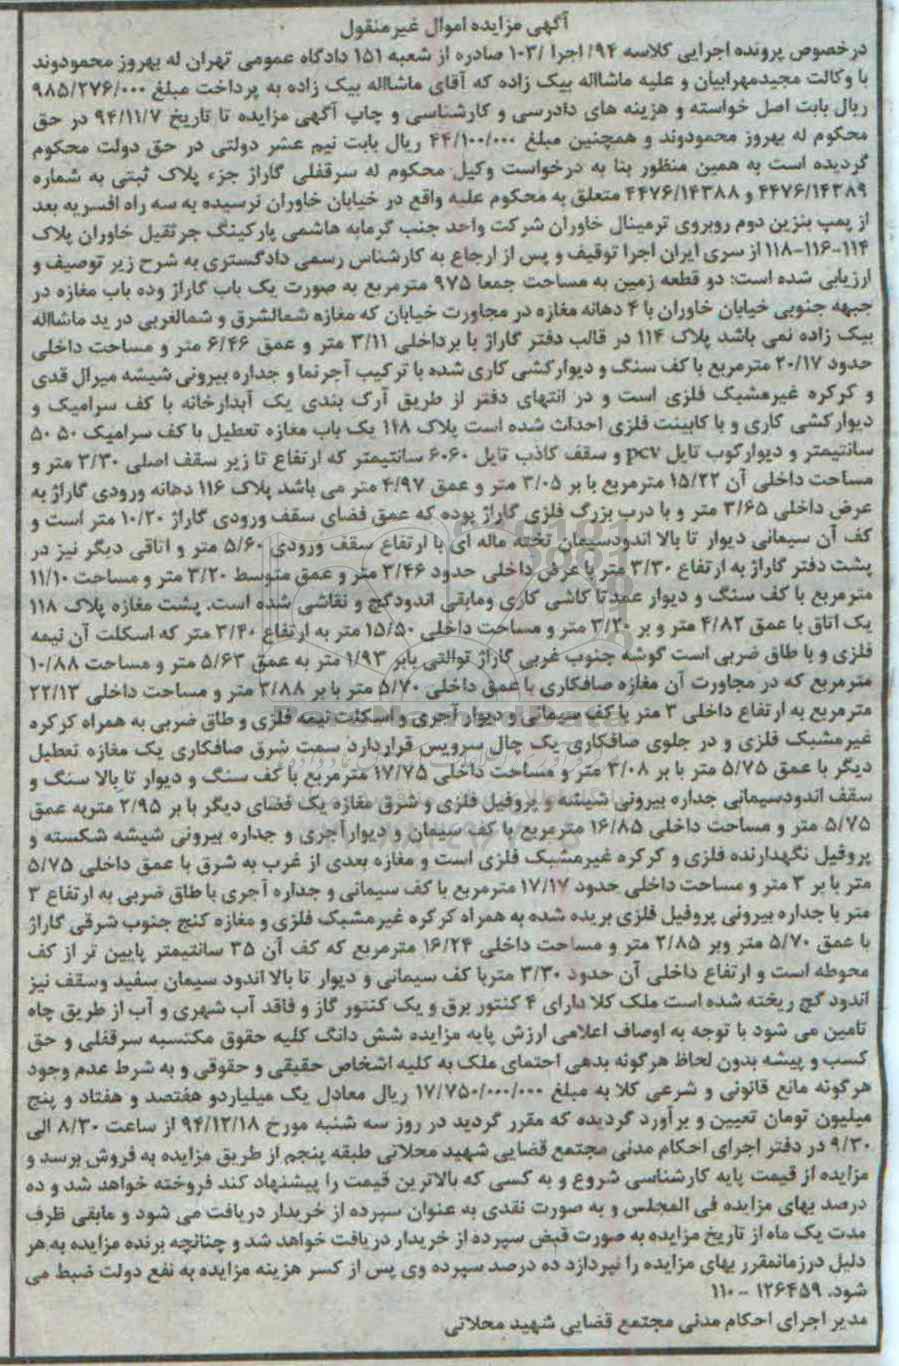 آگهی مزایده اموال غیرمنقول
درخصوص پرونده اجرایی کلاسه ۹۴/ اجرا /۱۰۳ صادره از شعبه ۱۵۱ دادگاه عمومی تهران له بهروز محمودوند
با وکالت مجیدمهرابیان و علیه ماشااله بیک زاده که آقای ماشااله بیک زاده به پرداخت مبلغ ۹۸۵/۲۷۶/۰۰۰
ریال بابت اصل خواسته و هزینه های دادرسی و کارشناسی و چاپ آگهی مزایده تا تاریخ ۹۴/۱۱/۷ در حق
محکوم له بهروز محمودوند و همچنین مبلغ ۴۴/۱۰۰/۰۰۰ ریال بابت نیم عشر دولتی در حق دولت محکوم
گردیده است به همین منظور بنا به درخواست وکیل محکوم له سرقفلی گاراژ جزء پلاک ثبتی به شماره
۴۴۷۶/۱۴۳۸۹ و ۴۴۷۶/۱۴۳۸۸ متعلق به محکوم علیه واقع در خیابان خاوران نرسیده به سه راه افسریه بعد
از پمپ بنزین دوم روبروی ترمینال خاوران شرکت واحد جنب گرمابه هاشمی پارکینگ جرثقیل خاوران پلاک
۱۱۴-۱۱۶-۱۱۸ از سری ایران اجرا توقیف و پس از ارجاع به کارشناس رسمی دادگستری به شرح زیر توصیف و
ارزیابی شده است: دو قطعه زمین به مساحت جمعا ۹۷۵ مترمربع به صورت یک باب گاراژ وده باب مغازه در
جبهه جنوبی خیابان خاوران با ۴ دهانه مغازه در مجاورت خیابان که مغازه شمالشرق و شمالغربی در ید ماشااله
بیک زاده نمی باشد پلاک ۱۱۴ در قالب دفتر گاراژ با برداخلی ۳/۱۱ متر و عمق ۶/۴۶ متر و مساحت داخلی
حدود ۲۰/۱۷ مترمربع با کف سنگ و دیوارکشی کاری شده با ترکیب آجرنما و جداره بیرونی شیشه میرال قدی
و کرکره غیرمشبک فلزی است و در انتهای دفتر از طریق آرک بندی یک آبدارخانه با کف سرامیک و
دیوارکشی کاری و با کابینت فلزی احداث شده است پلاک ۱۱۸ یک باب مغازه تعطیل با کف سرامیک ۵۰ ۵۰
سانتیمتر و دیوارکوب تایل pcv و سقف کاذب تایل ۶۰۶۰ سانتیمتر که ارتفاع تا زیر سقف اصلی ۳/۳۰ متر و
مساحت داخلی آن ۱۵/۲۲ مترمربع با بر ۳/۰۵ متر و عمق ۴/۹۷ متر می باشد پلاک ۱۱۶ دهانه ورودی گاراژ به
عرض داخلی ۳/۶۵ متر و با درب بزرگ فلزی گاراژ بوده که عمق فضای سقف ورودی گاراژ ۱۰/۲۰ متر است و
کف آن سیمانی دیوار تا بالا اندودسیمان تخته ماله ای با ارتفاع سقف ورودی ۵/۶۰ متر و اتاقی دیگر نیز در
پشت دفتر گاراژ به ارتفاع ۳/۳۰ متر با عرض داخلی حدود ۳/۴۶ متر و عمق متوسط ۳/۲۰ متر و مساحت ۱۱/۱۰
مترمربع با کف سنگ و دیوار عمدتا کاشی کاری ومابقی اندودگچ و نقاشی شده است. پشت مغازه پلاک ۱۱۸
یک اتاق با عمق ۴/۸۲ متر و بر ۳/۲۰ متر و مساحت داخلی ۱۵/۵۰ متر به ارتفاع ۳/۴۰ متر که اسکلت آن نیمه
فلزی و با طاق ضربی است گوشه جنوب غربی گاراژ توالتی بابر ۱/۹۳ متر به عمق ۵/۶۳ متر و مساحت ۱۰/۸۸
مترمربع که در مجاورت آن مغازه صافکاری با عمق داخلی ۵/۷۰ متر با بر ۳/۸۸ متر و مساحت داخلی ۲۲/۱۳
مترمربع به ارتفاع داخلی ۳ متر با کف سیمانی و دیوار آجری و اسکلت نیمه فلزی و طاق ضربی به همراه کرکره
غیرمشبک فلزی و در جلوی صافکاری یک چال سرویس قراردارد سمت شرق صافکاری یک مغازه تعطیل
دیگر با عمق ۵/۷۵ متر با بر ۳/۰۸ متر و مساحت داخلی ۱۷/۷۵ مترمربع با کف سنگ و دیوار تا بالا سنگ و
سقف اندودسیمانی جداره بیرونی شیشه و پروفیل فلزی و شرق مغازه یک فضای دیگر با بر ۲/۹۵ متربه عمق
۵/۷۵ متر و مساحت داخلی ۱۶/۸۵ مترمربع با کف سیمان و دیوارآجری و جداره بیرونی شیشه شکسته و
پروفیل نگهدارنده فلزی و کرکره غیرمشبک فلزی است و مغازه بعدی از غرب به شرق با عمق داخلی ۵/۷۵
متر با بر ۳ متر و مساحت داخلی حدود ۱۷/۱۷ مترمربع با کف سیمانی و جداره آجری با طاق ضربی به ارتفاع ۳
متر با جداره بیرونی پروفیل فلزی بریده شده به همراه کرکره غیرمشبک فلزی و مغازه کنج جنوب شرقی گاراژ
با عمق ۵/۷۰ متر وبر ۲/۸۵ متر و مساحت داخلی ۱۶/۲۴ مترمربع که کف آن ۳۵ سانتیمتر پایین تر از کف
محوطه است و ارتفاع داخلی آن حدود ۳/۳۰ متربا کف سیمانی و دیوار تا بالا اندود سیمان سفید وسقف نیز
اندود گچ ریخته شده است ملک کلا دارای ۴ کنتور برق و یک کنتور گاز و فاقد آب شهری و آب از طریق چاه
تامین می شود با توجه به اوصاف اعلامی ارزش پایه مزایده شش دانگ کلیه حقوق مکتسبه سرقفلی و حق
کسب و پیشه بدون لحاظ هرگونه بدهی احتمای ملک به کلیه اشخاص حقیقی و حقوقی و به شرط عدم وجود
هرگونه مانع قانونی و شرعی کلا به مبلغ ۱۷/۷۵۰/۰۰۰/۰۰۰ ریال معادل یک میلیاردو هفتصد و هفتاد و پنج
میلیون تومان تعیین و برآورد گردیده که مقرر گردید در روز سه شنبه مورخ ۹۴/۱۲/۱۸ از ساعت ۸/۳۰ الی
۹/۳۰ در دفتر اجرای احکام مدنی مجتمع قضایی شهید محلاتی طبقه پنجم از طریق مزایده به فروش برسد و
مزایده از قیمت پایه کارشناسی شروع و به کسی که بالاترین قیمت را پیشنهاد کند فروخته خواهد شد و ده
درصد بهای مزایده فی المجلس و به صورت نقدی به عنوان سپرده از خریدار دریافت می شود و مابقی ظرف
مدت یک ماه از تاریخ مزایده به صورت قبض سپرده از خریدار دریافت خواهد شد و چنانچه برنده مزایده به هر
دلیل درزمانمقرر بهای مزایده را نپردازد ده درصد سپرده وی پس از کسر هزینه مزایده به نفع دولت ضبط می
شود. ۱۲۶۴۵۹ - ۱۱۰
مدیر اجرای احکام مدنی مجتمع قضایی شهید محلاتی